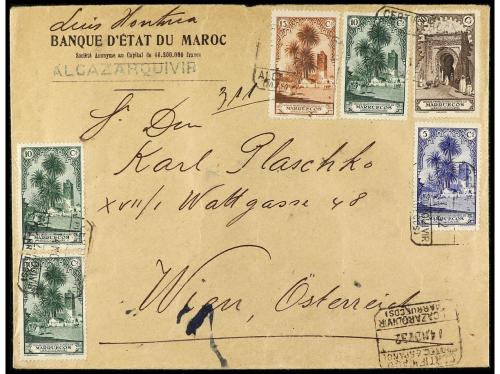 Luis
BANQUE D'ÉTAT DU MAROC
Société Anonyme au Capital de 46.200.000 francs
ALCAZARQUIVIR
15 Cs
MARRUECOS
10 Cs
MARRUECOS
MARRUECOS
5 Cs
MARRUECOS
10 Cs
MARRUECOS
10 Cs
MARRUECOS
Karl Plaschko
XVII/1 Wattgasse 48
Wien, Österreich
ALCAZARQUIVIR
(MARRUECOS)